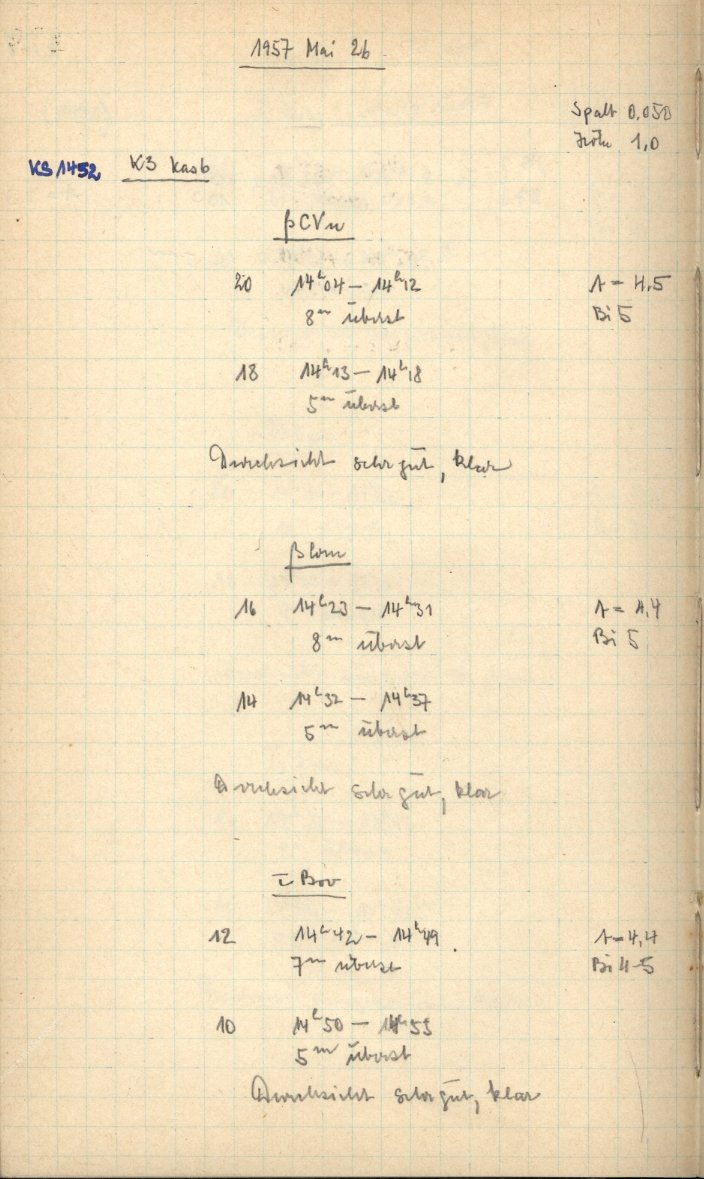 1957 Mai 26
Spalt 0,050
1,0
KS 1452 K3 Kasb
β CVn
20 14ʰ04 — 14ʰ12 A = 4,5
8ᵐ überst Bi 5
18 14ʰ13 — 14ʰ18
5ᵐ überst
Durchsicht sehr gut, klar
β Com
16 14ʰ23 — 14ʰ31 A = 4,4
8ᵐ überst Bi 5
14 14ʰ32 — 14ʰ37
5ᵐ überst
Durchsicht sehr gut, klar
Boo
12 14ʰ42 — 14ʰ49 A = 4,4
7ᵐ überst Bi 4-5
10 14ʰ50 — 14ʰ55
5ᵐ überst
Durchsicht sehr gut, klar